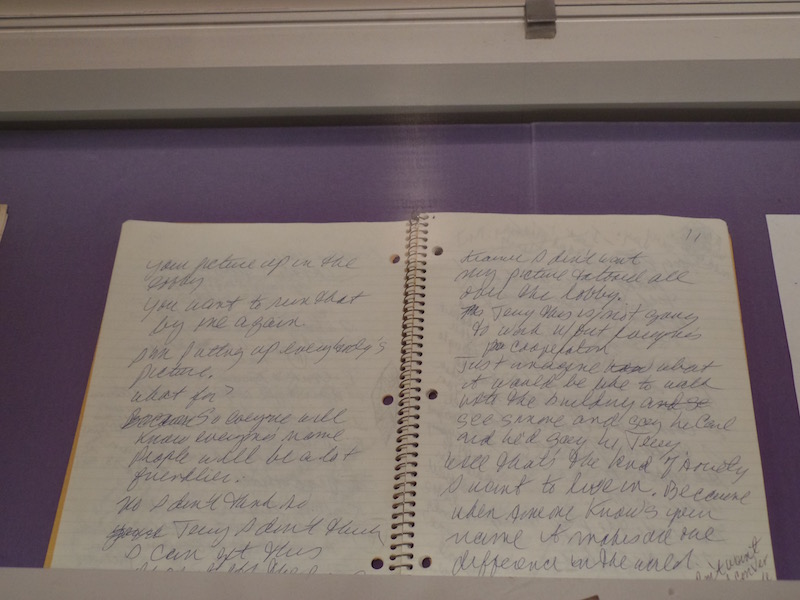 your picture up in the
lobby
You want to run that
by me again.
I'm putting up everybody's
picture.
What for?
Because So everyone will
know everyone's name
People will be a lot
friendlier.
No I don't think so
Jerry I don't think
I can get this
11
Kramer I don't want
my picture all
over the lobby.
Jerry this is not going
to work w/out everyone's
cooperation
Just imagine what
it would be like to walk
into the building and
see someone and say hi Carl
and he'd say hi, Jerry
Well that's the kind of society
I want to live in. Because
when someone knows your
name it makes all the
difference in the world
don't want